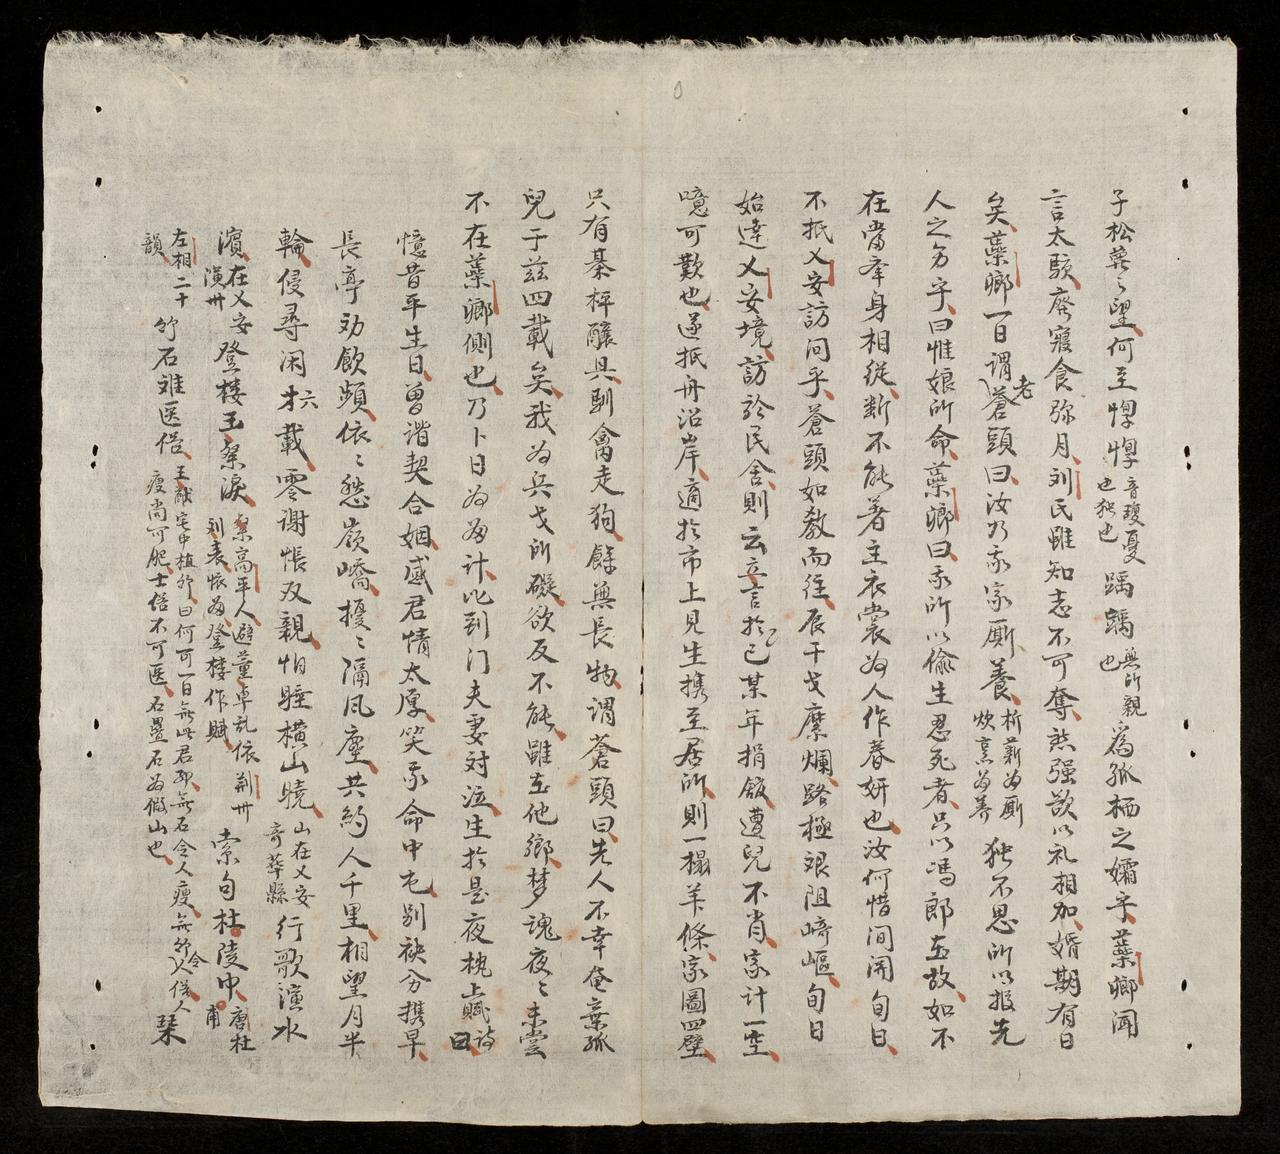 子松蘿之望何至惸惸音瓊憂也独也踽踽無所親也為孤栖之孀乎蘂卿闻
言太駭廃寝食弥月刘民雖知志不可奪然强欲以礼相加婚期有日
矣蘂卿一日谓老蒼頭曰汝乃我家厮養析薪为厮炊烹为养独不思所以报先
人之乎曰惟娘所命蘂卿曰我所以偷生忍死者只以馮郎在故如不
在當奉身相從断不能著主衣裳为人作春妍也汝何惜间関旬日
不抵乂安訪问乎蒼頭如教而往辰干戈糜爛路極艰阻崎嶇旬日
始達乂安境訪於民舍則云立言於已某年捐飯遭兒不肖家计一空
噫可歎也遂抵舟沿岸適於市上見生携至居所則一榻羊條家圖四壁
只有棊枰釀具馴禽走狗餘無長物谓蒼頭曰先人不幸奄棄孤
兒于兹四載矣我为兵戈所礙欲反不能雖在他鄉梦魂夜夜未尝
不在蘂卿側也乃卜日为计比到门夫妻対泣生於是夜枕上賦诗曰
憶昔平生日曽谐契合姻感君情太厚笑我命中屯别袂分携早
長亭劝飲頻依依愁嶺嶠擾擾隔風塵共約人千里相望月半
輪侵尋闲才六載零谢悵双親怕睡横山曉山在乂安奇華縣行歌演水
濱在乂安演州登楼王粲淚粲高平人避董卓乱依荆州刘表悵为登楼作賦索句杜陵巾唐杜甫
左相二十韻竹石难医俗王猷宅中植竹曰何可一日無此君耶無石令人瘦無竹令人俗人瘦尚可肥士俗不可医石畳石为假山也琹